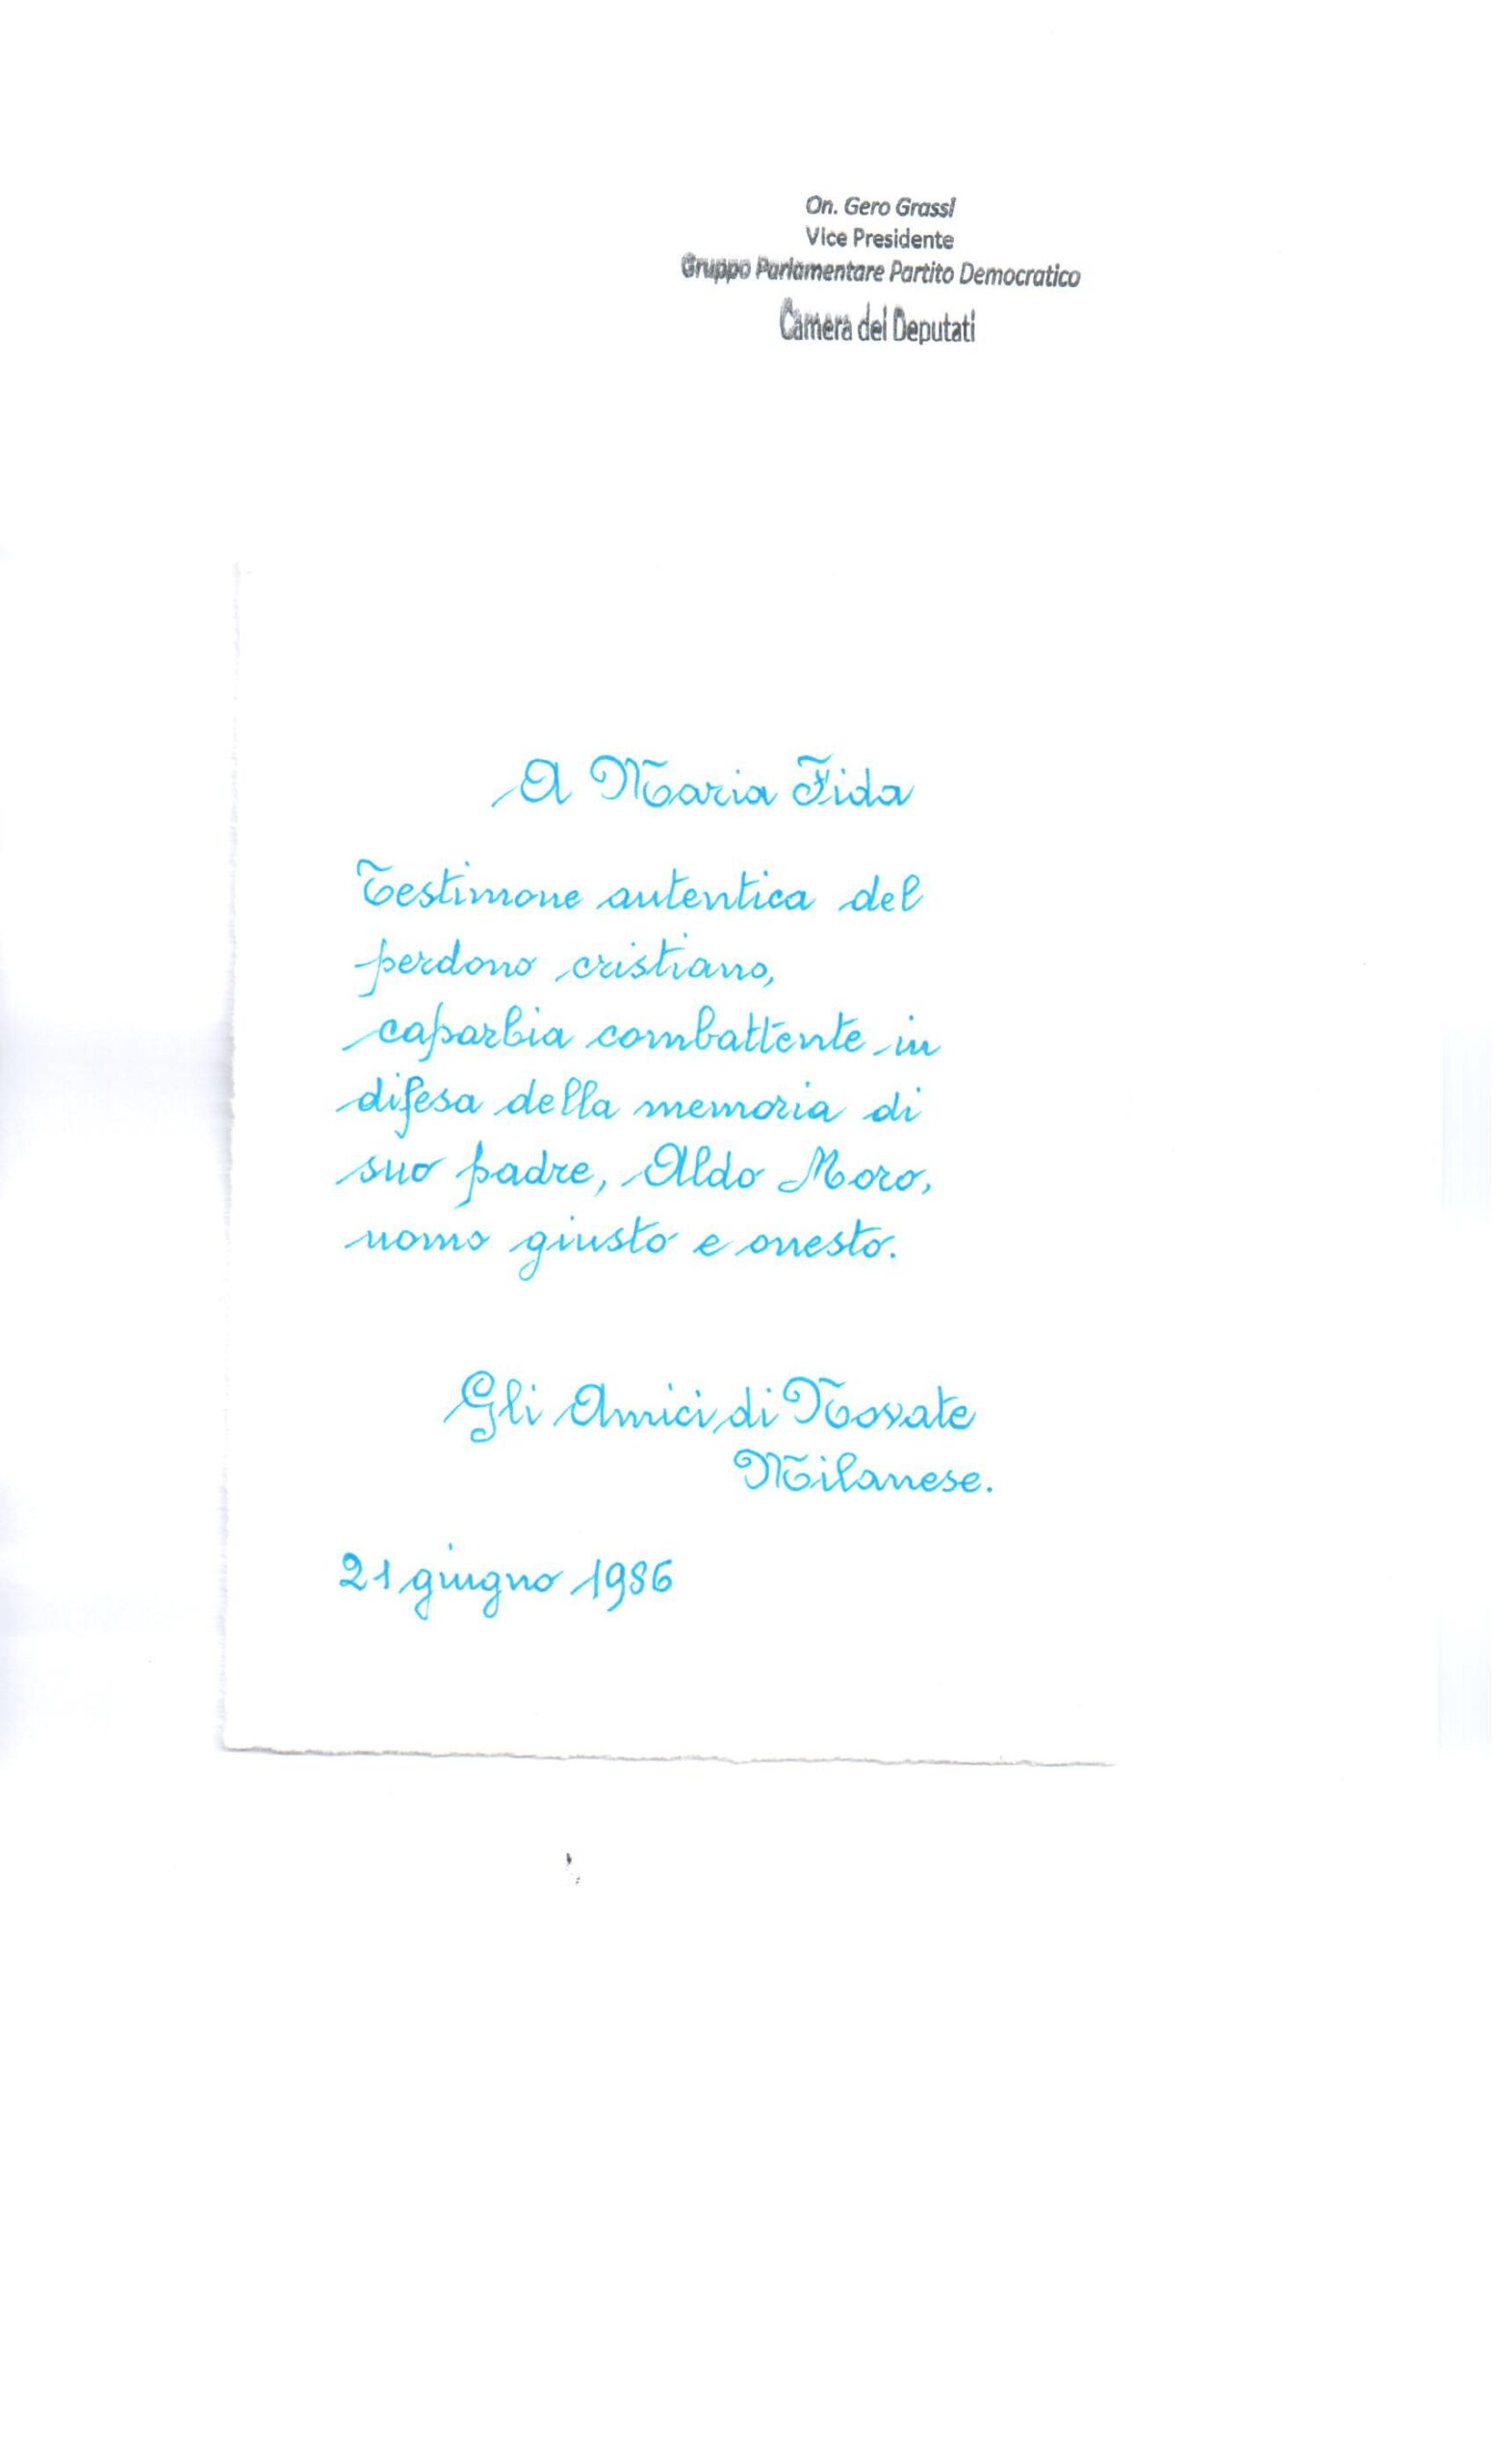 On. Gero Grassi
Vice Presidente
Gruppo Parlamentare Partito Democratico
Camera dei Deputati
A Maria Fida
Testimone autentica del
perdono cristiano,
caparbia combattente in
difesa della memoria di
suo padre, Aldo Moro,
uomo giusto e onesto.
Gli Amici di Novate
Milanese.
21 giugno 1986